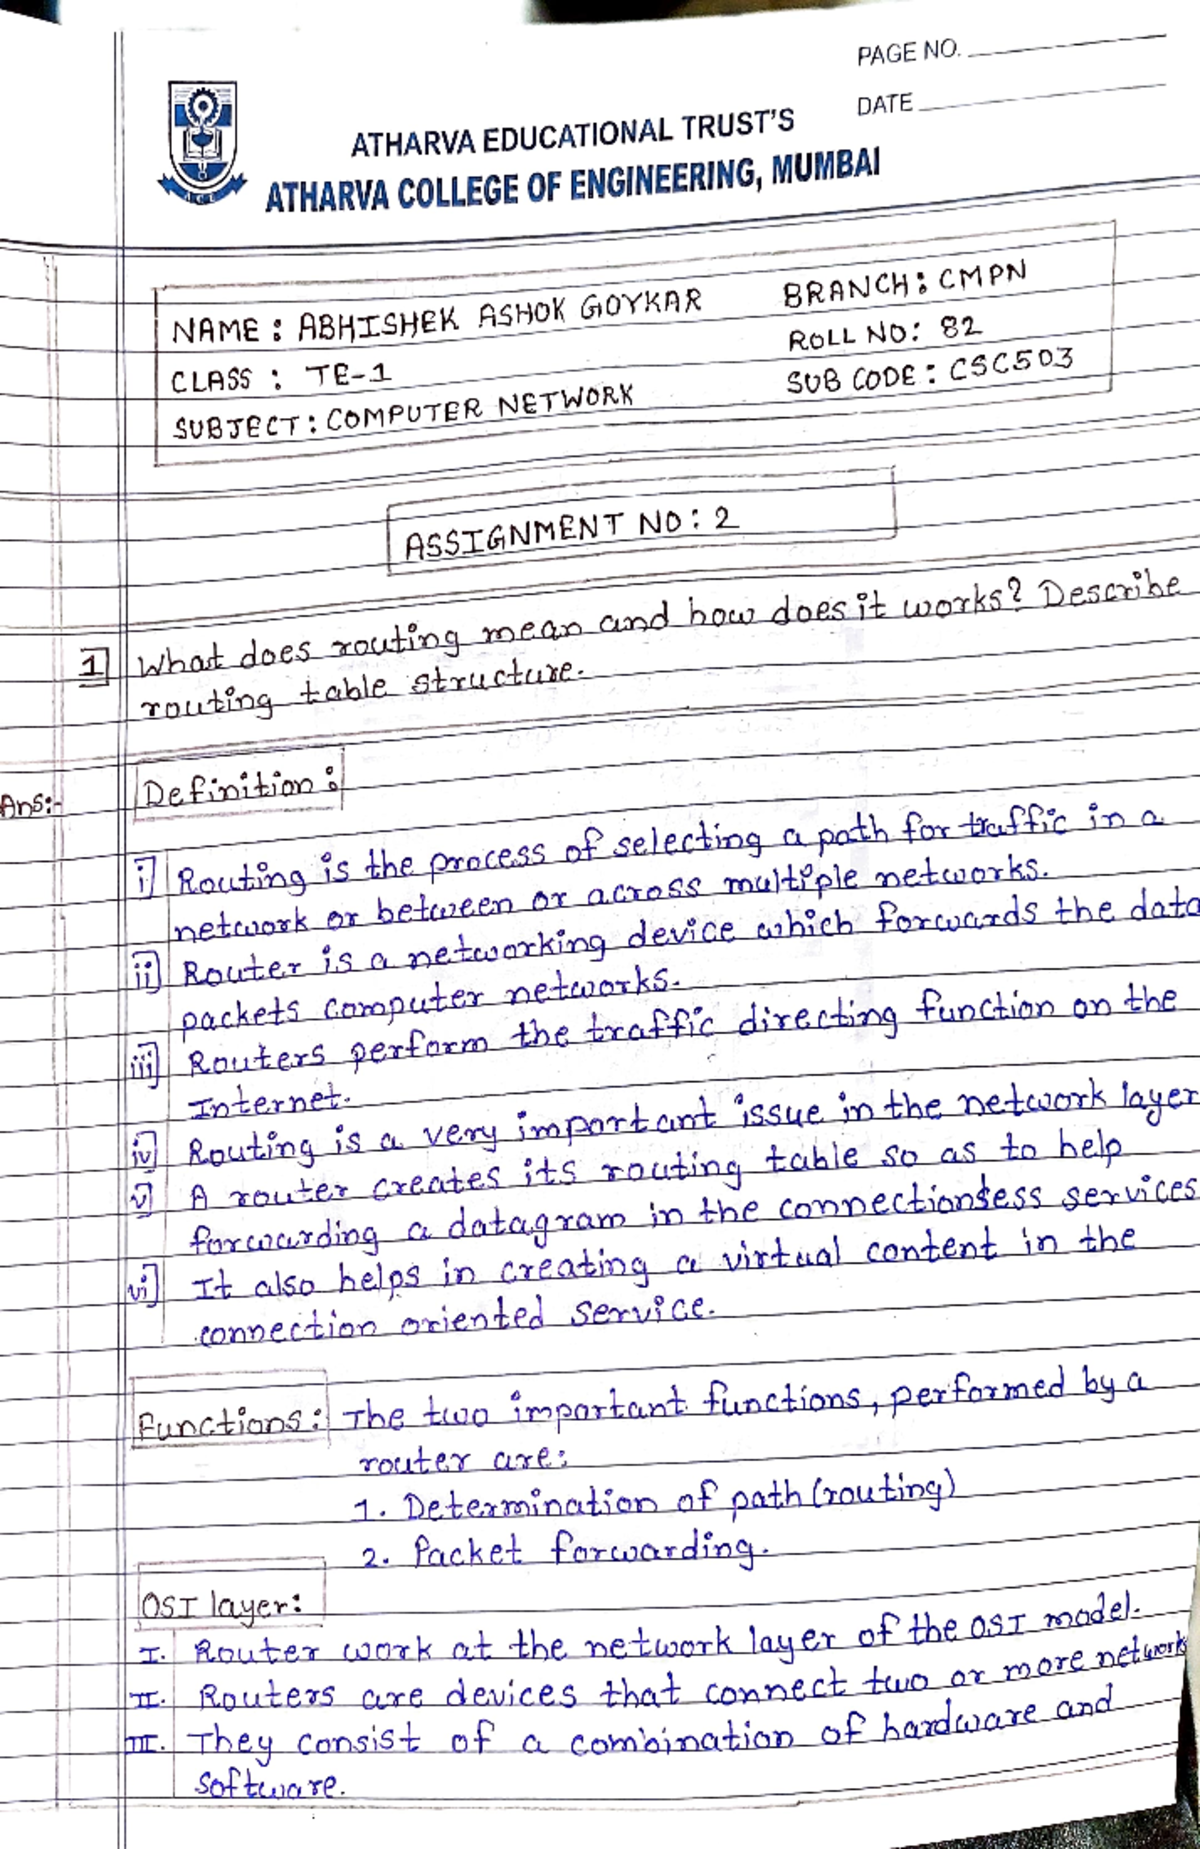 PAGE NO.
DATE
ATHARVA EDUCATIONAL TRUST'S
ATHARVA COLLEGE OF ENGINEERING, MUMBAI
NAME : ABHISHEK ASHOK GOYKAR BRANCH : CMPN
CLASS : TE-1 ROLL NO: 82
SUBJECT : COMPUTER NETWORK SUB CODE : CSC503
ASSIGNMENT NO : 2
1 What does routing mean and how does it works? Describe
routing table structure.
Ans:- Definition :
i] Routing is the process of selecting a path for traffic in a
network or between or across multiple networks.
ii] Router is a networking device which forwards the data
packets computer networks.
iii] Routers perform the traffic directing function on the
Internet.
iv] Routing is a very important issue in the network layer
v] A router creates its routing table so as to help
forwarding a datagram in the connectionless services
vi] It also helps in creating a virtual content in the
connection oriented service.
Functions : The two important functions, performed by a
router are:
1. Determination of path (routing)
2. Packet forwarding.
OSI layer:
I. Router work at the network layer of the OSI model.
II. Routers are devices that connect two or more network
III. They consist of a combination of hardware and
software.